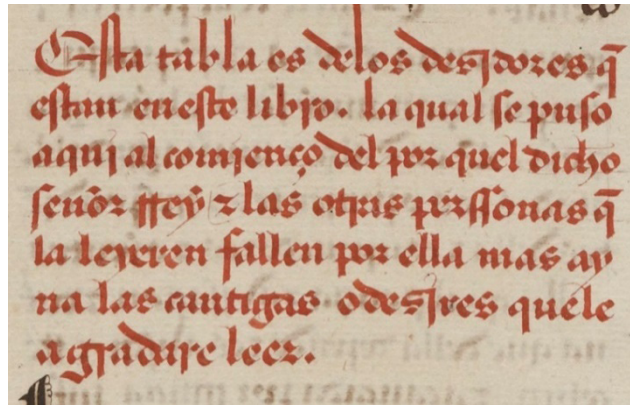 Esta tabla es delos desidores q̃
estan eneste libro. la qual se puso
aqui al comienço del por quel dicho
señor rrey ⁊ las otras perssonas q̃
la leyeren fallen por ella mas ay
na las cantigas o desires quele
agradare leer.